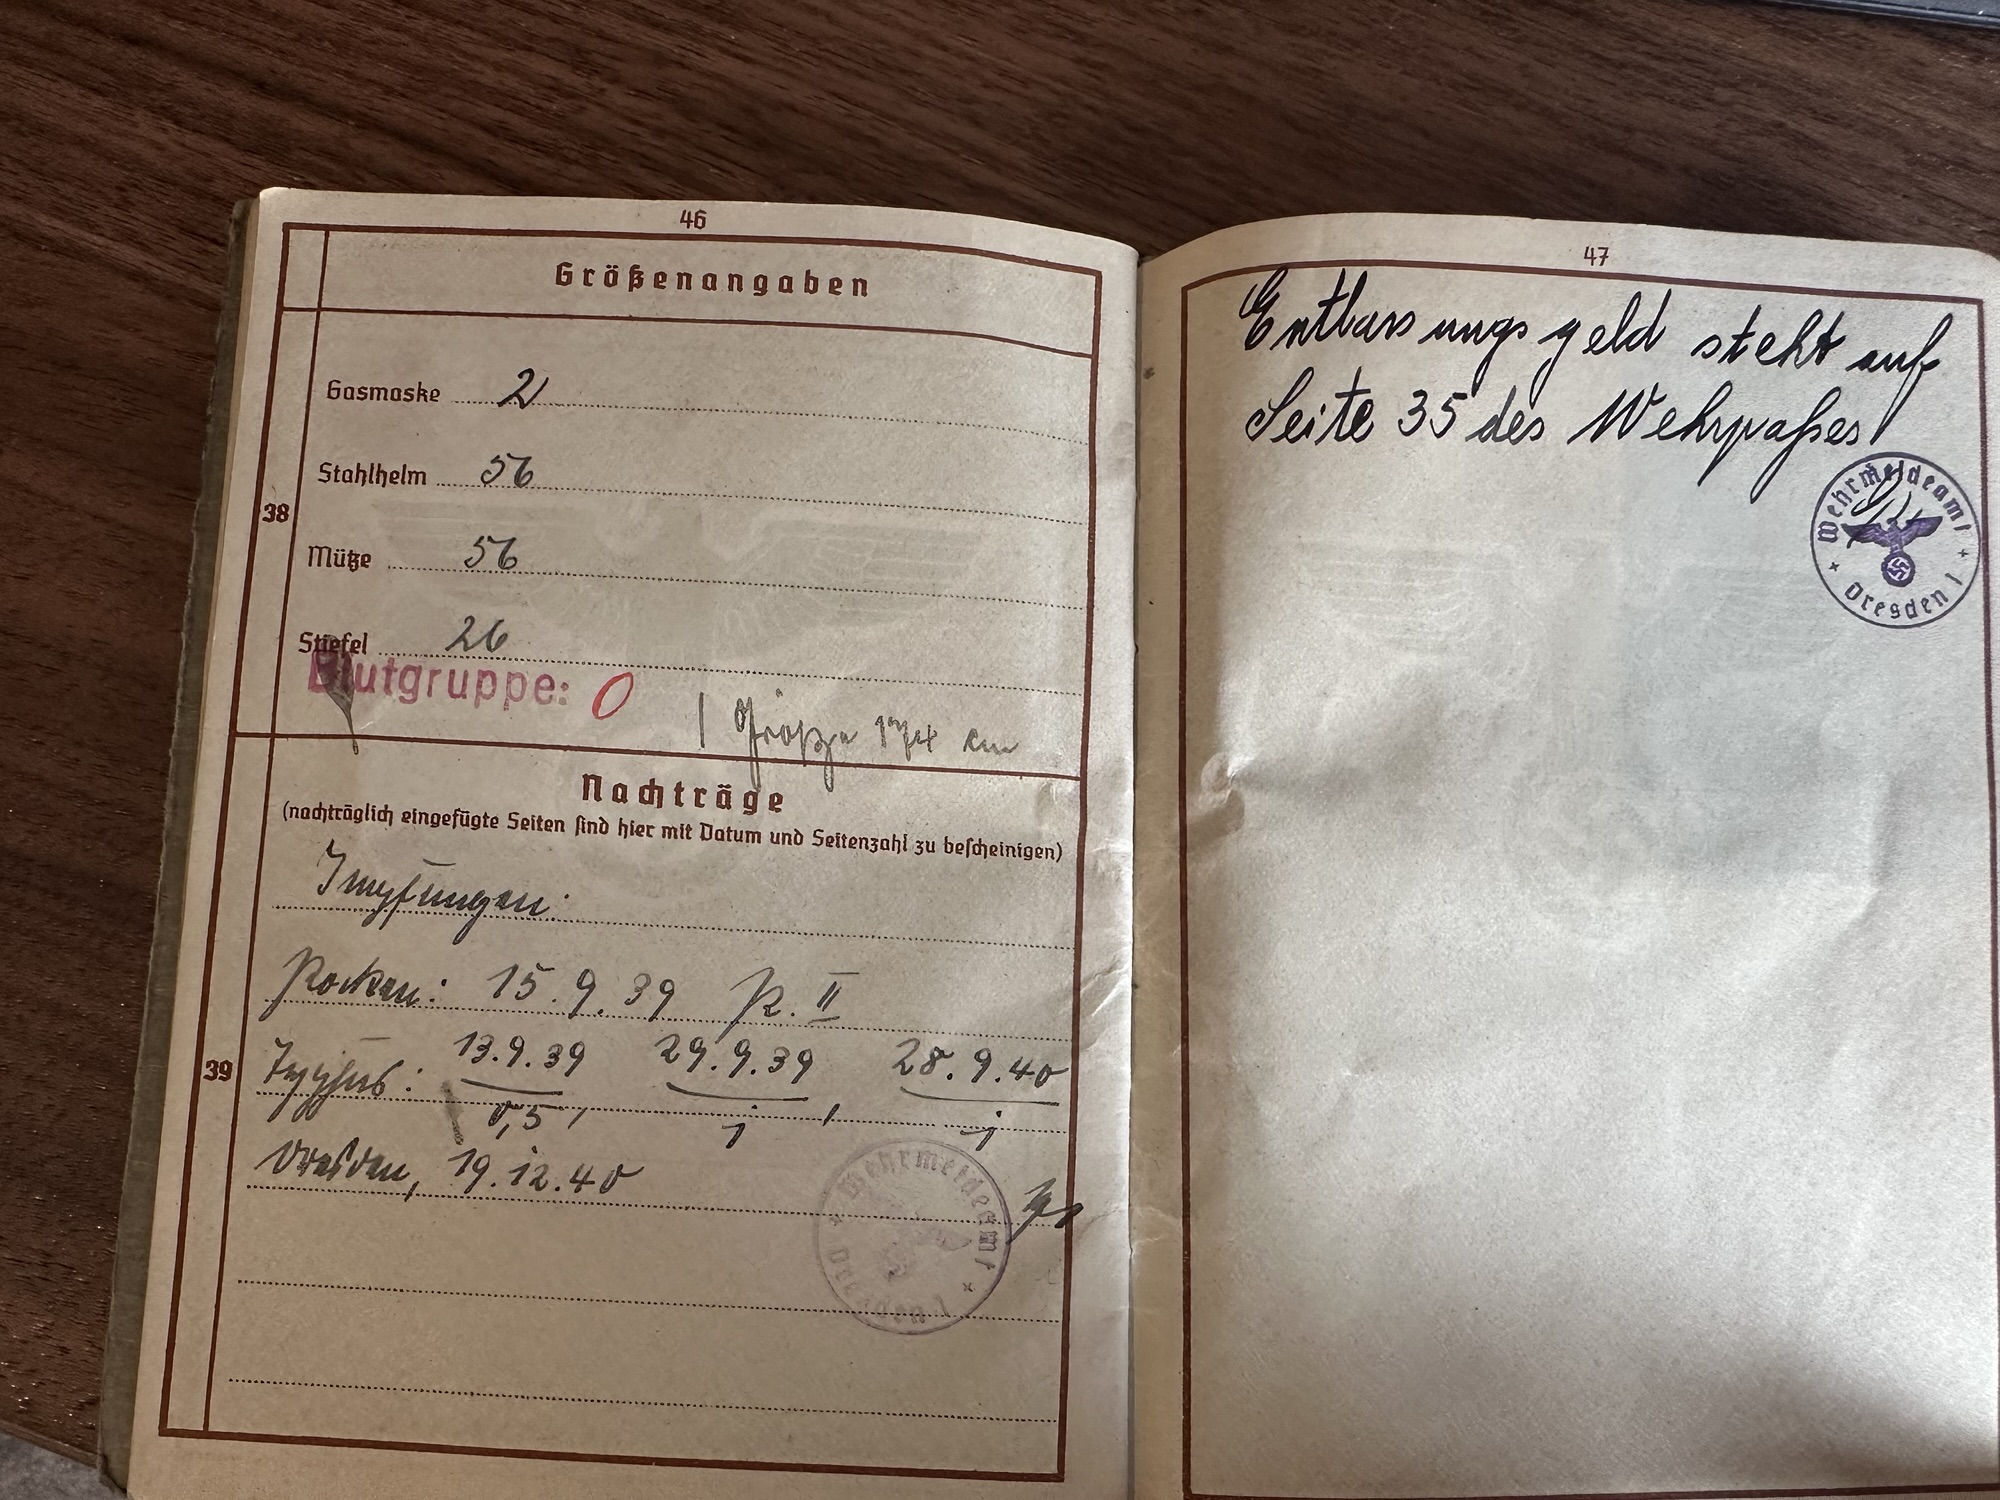 46
Größenangaben
Gasmaske 2
Stahlhelm 56
38
Mütze 56
Stiefel 26
Blutgruppe: 0
Größe 174 cm
Nachträge
(nachträglich eingefügte Seiten sind hier mit Datum und Seitenzahl zu bescheinigen)
Impfungen:
Pocken: 15.9.39 P. II
39
Typhus: 13.9.39 29.9.39 28.9.40
0,5, 1, 1
Dresden, 19.12.40
Wehrmeldeamt
Dresden 1
47
Entlassungsgeld steht auf
Seite 35 des Wehrpaßes
Wehrmeldeamt
Dresden 1